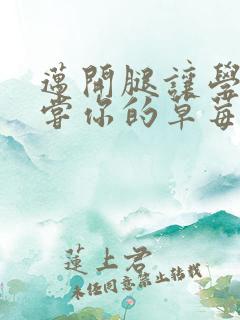 邁開腿讓學
嘗你的草莓
蓮上君
未任同意禁止转载